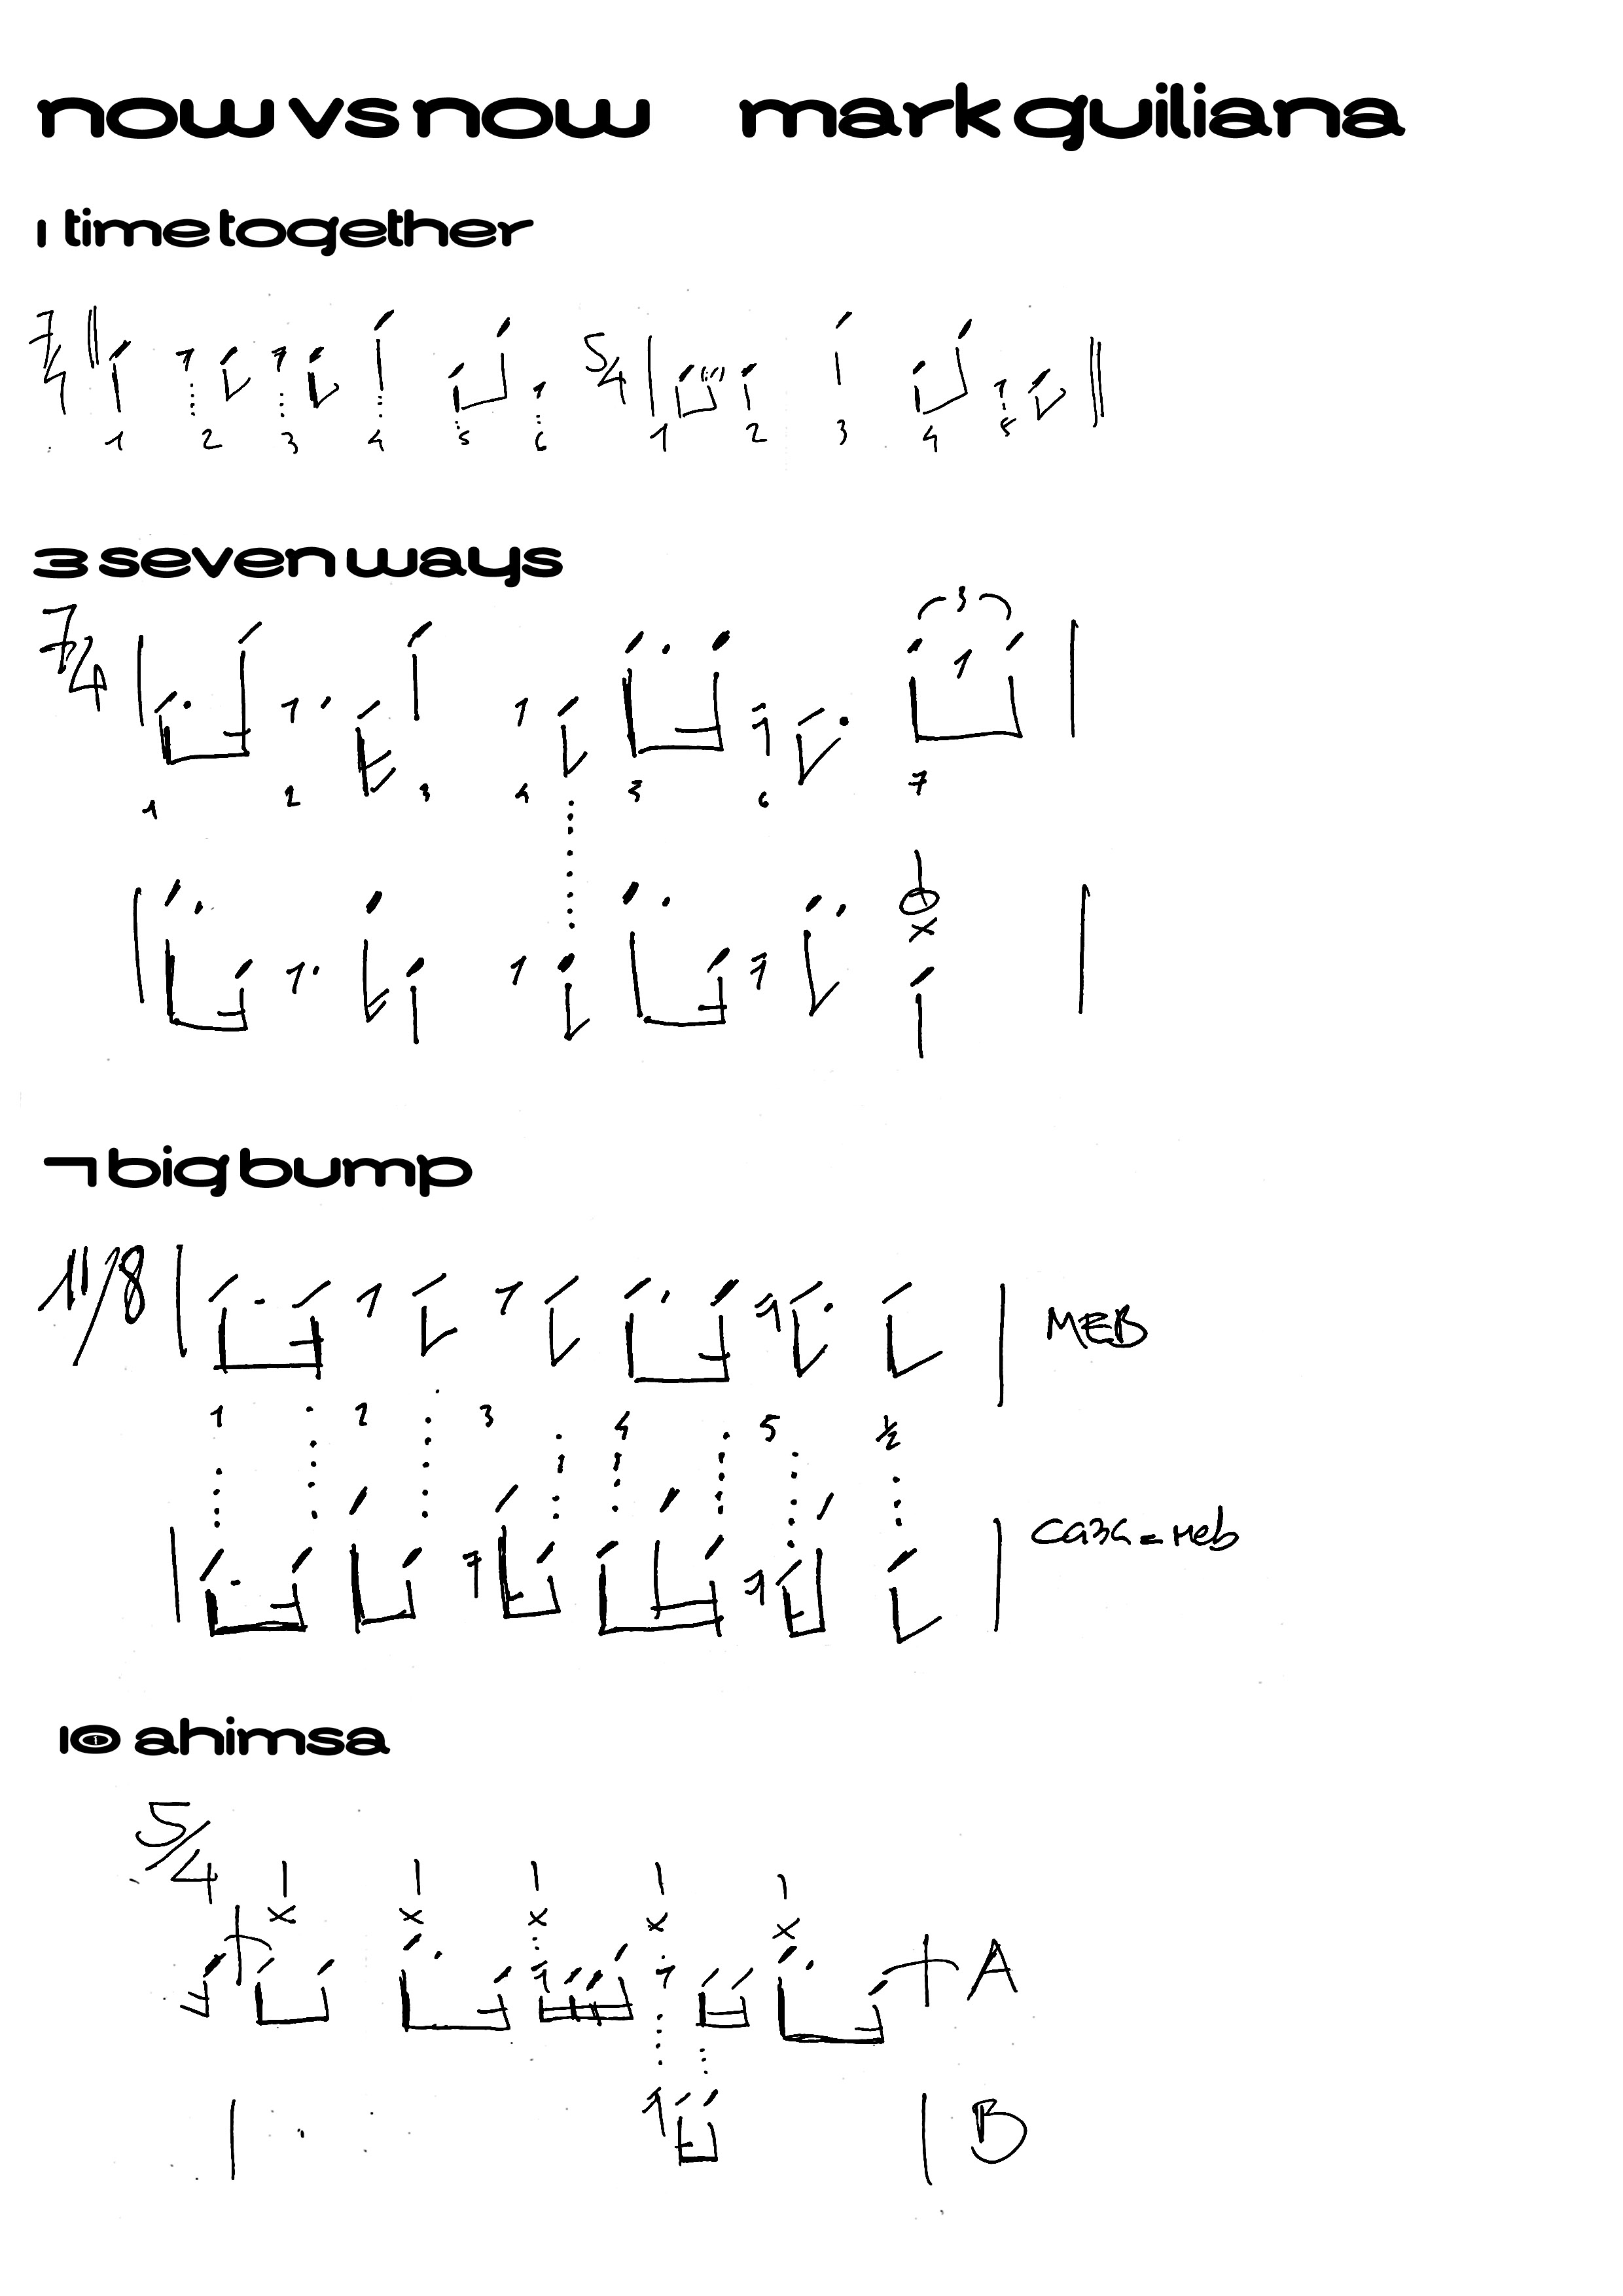 now vs now mark guiliana
1 time together
7/4 5/4
1 2 3 4 5 6 1 2 3 4 5
3 seven ways
3
7/4
1 2 3 4 5 6 7
7 big bump
11/8 MEB
1 2 3 4 5 1/2
10 ahimsa
5/4
A
B